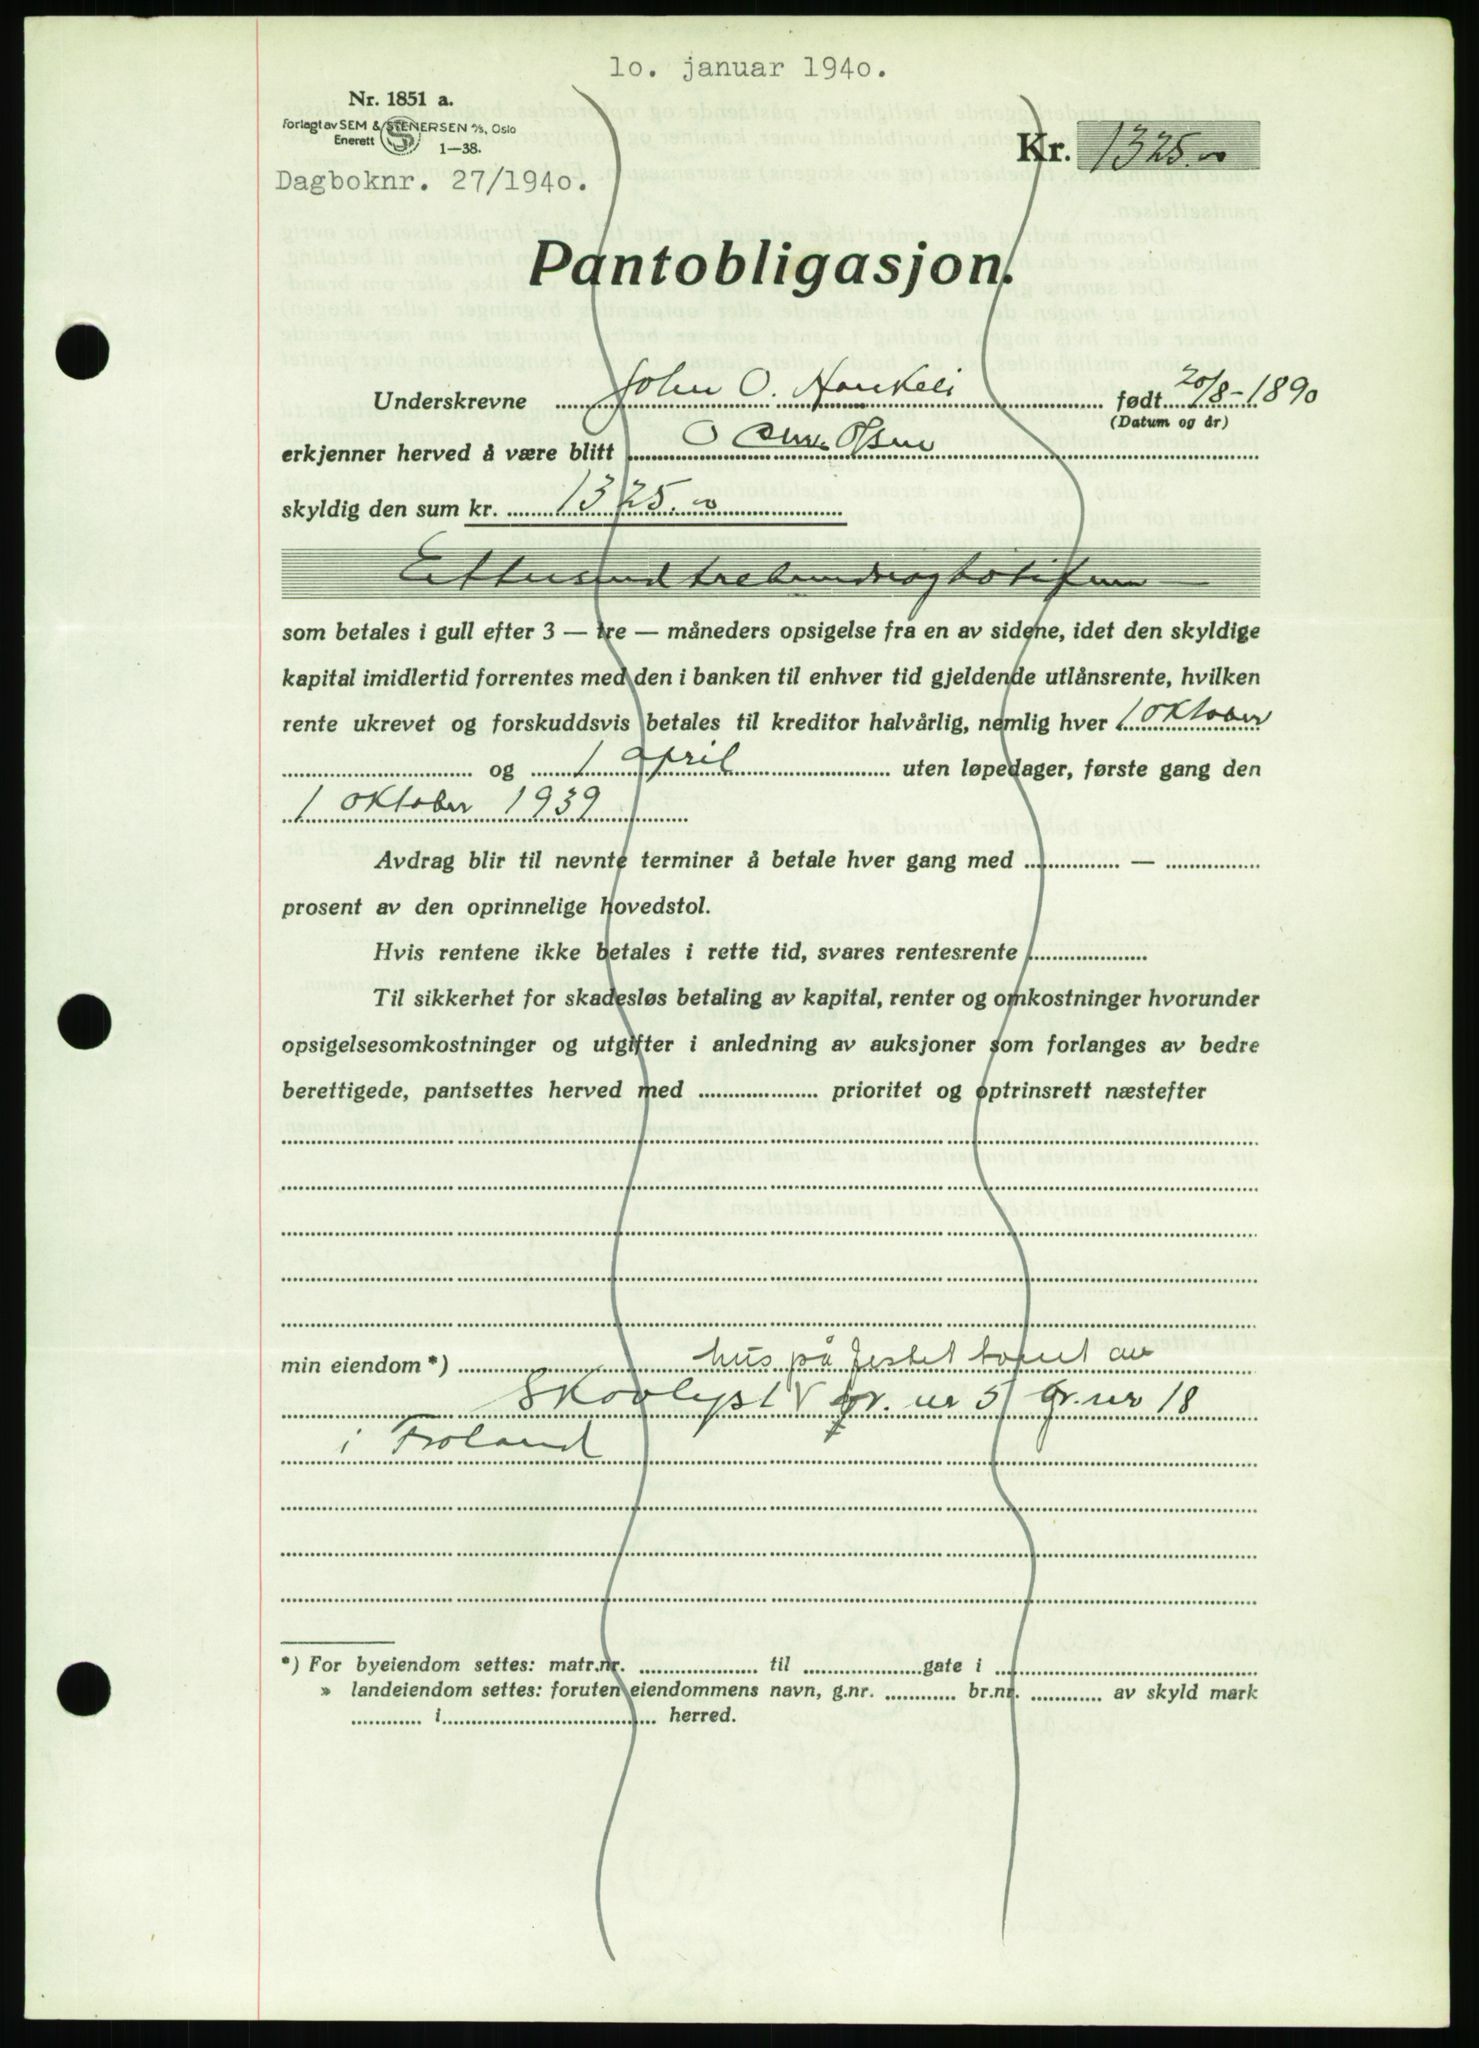 10. januar 1940.
Nr. 1851 a.
Forlagt av SEM & STENERSEN A/S, Oslo
Enerett 1—38.
Kr. 1325.00
Dagboknr. 27/1940.
Pantobligasjon.
Underskrevne John O. født 20/8-1890
(Datum og år)
erkjenner herved å være blitt O Olsen
skyldig den sum kr. 1325.00
Ettusendtrehundreogtotifem —
som betales i gull efter 3 — tre — måneders opsigelse fra en av sidene, idet den skyldige
kapital imidlertid forrentes med den i banken til enhver tid gjeldende utlånsrente, hvilken
rente ukrevet og forskuddsvis betales til kreditor halvårlig, nemlig hver 1 oktober
og 1 april uten løpedager, første gang den
1 oktober 1939
Avdrag blir til nevnte terminer å betale hver gang med —
prosent av den oprinnelige hovedstol.
Hvis rentene ikke betales i rette tid, svares rentesrente
Til sikkerhet for skadesløs betaling av kapital, renter og omkostninger hvorunder
opsigelsesomkostninger og utgifter i anledning av auksjoner som forlanges av bedre
berettigede, pantsettes herved med prioritet og optrinsrett næstefter
min eiendom *) hus på festet tomt av
Skovlyst V gr. nr 5 br. nr 18
i Froland
*) For byeiendom settes: matr.nr. til gate i
» landeiendom settes: foruten eiendommens navn, g.nr. br.nr. av skyld mark
i herred.